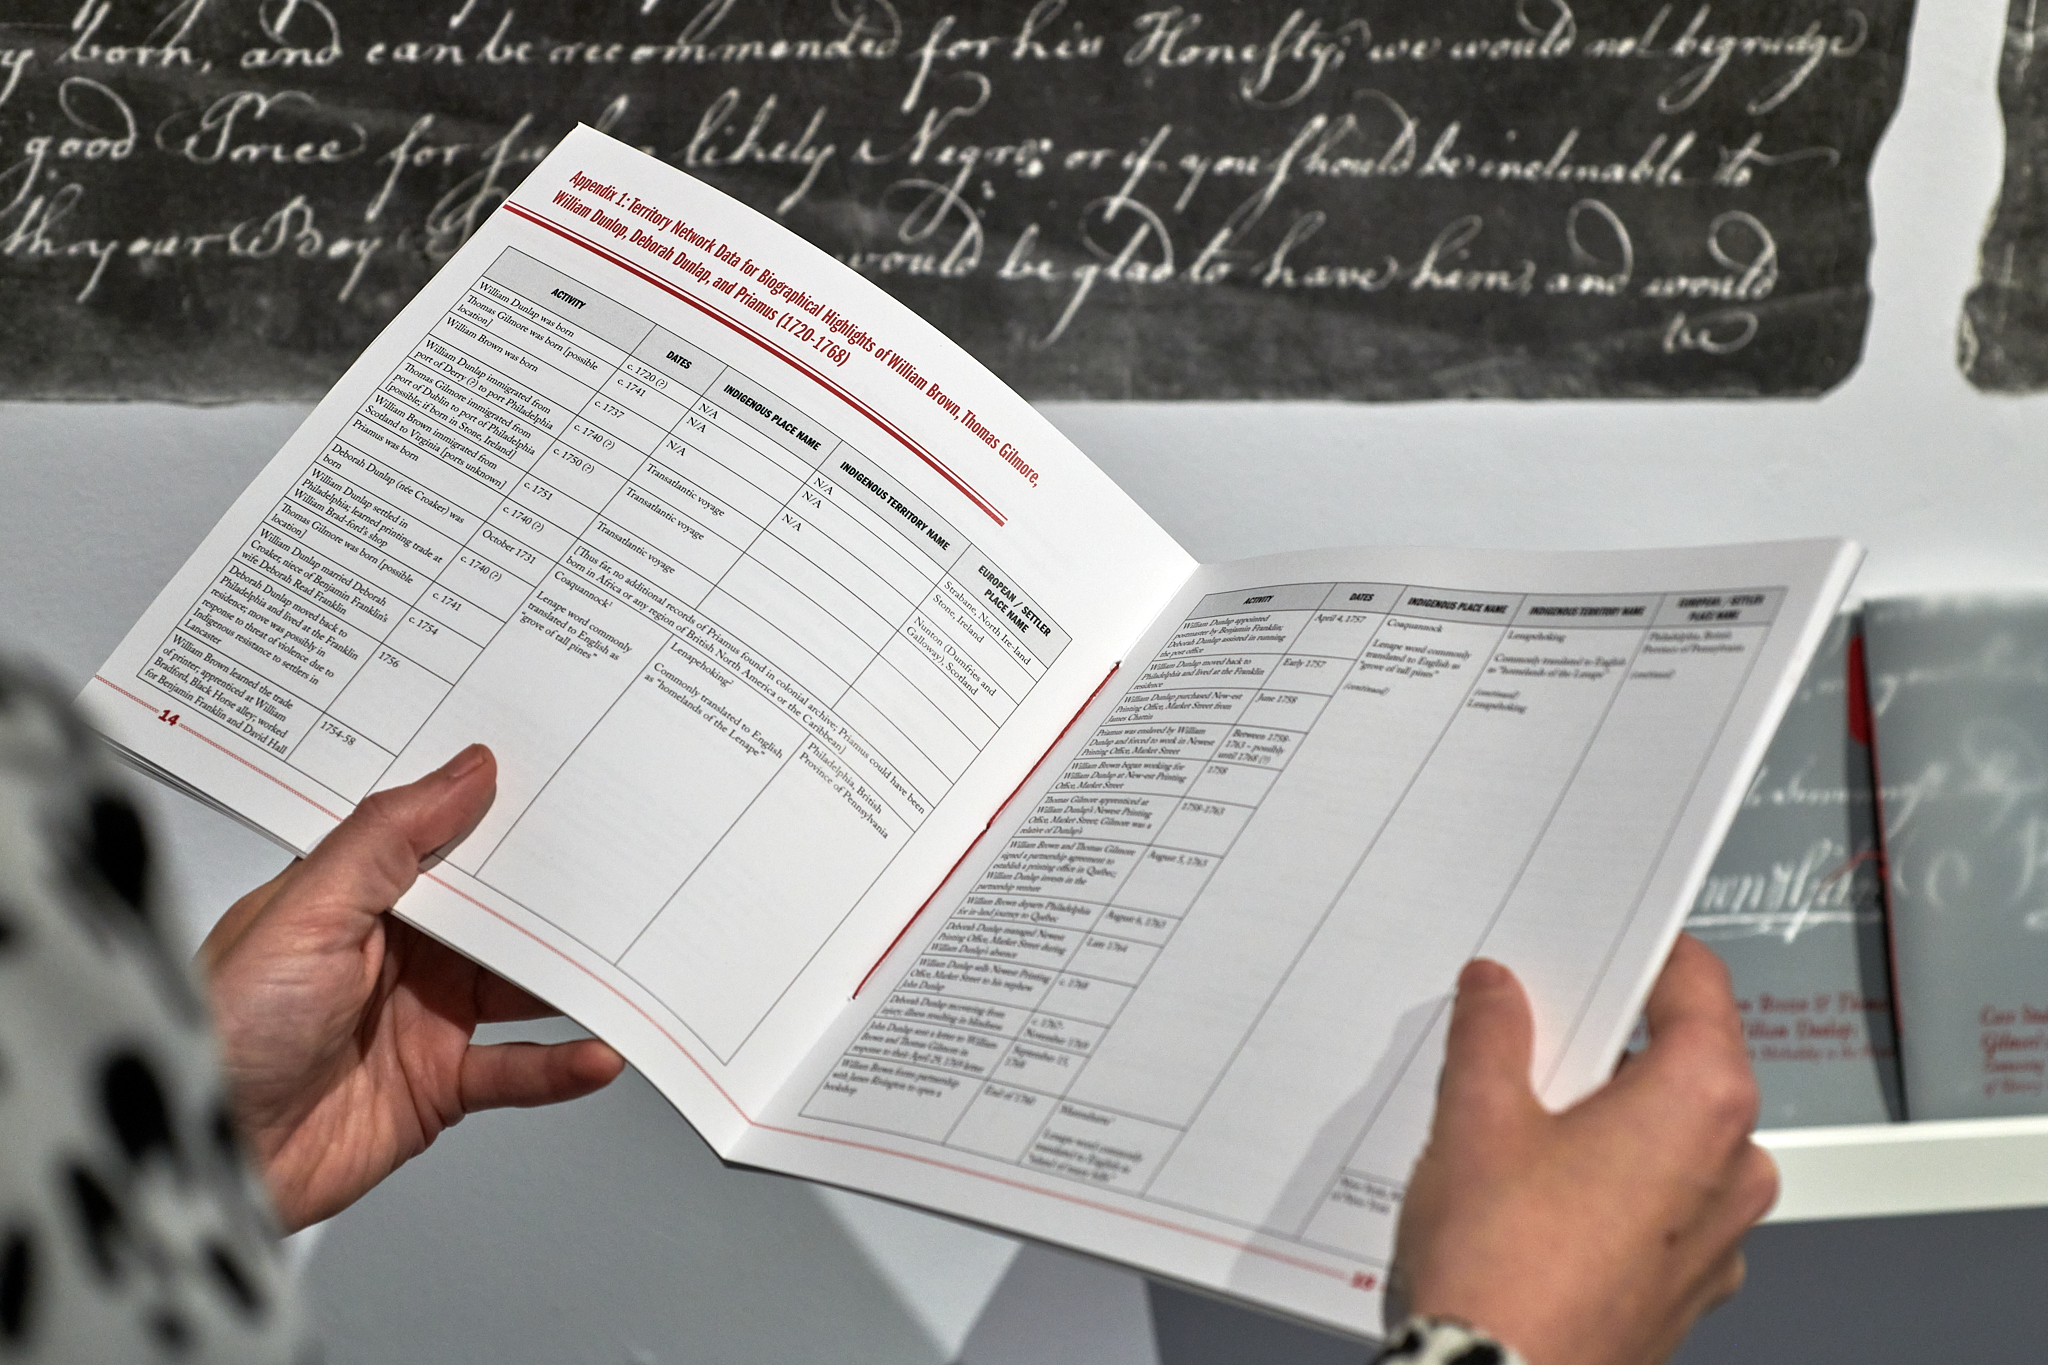 born, and can be recommended for his Honesty; we would not begrudge
good Price for likely Negro; or if you should be inclinable to
your Boy would be glad to have him, and would
we
Appendix 1: Territory Network Data for Biographical Highlights of William Brown, Thomas Gilmore,
William Dunlop, Deborah Dunlap, and Priamus (1720-1768)
ACTIVITY DATES INDIGENOUS PLACE NAME INDIGENOUS TERRITORY NAME EUROPEAN / SETTLER
PLACE NAME
William Dunlap was born
c. 1720 (?)
N/A
N/A
Strabane, North Ire-land
Thomas Gilmore was born [possible
location]
c. 1741
N/A
N/A
Stone, Ireland
William Brown was born
c. 1737
N/A
N/A
Nunton (Dumfries and
Galloway), Scotland
William Dunlap immigrated from
port of Derry (?) to port Philadelphia
c. 1740 (?)
Transatlantic voyage
Thomas Gilmore immigrated from
port of Dublin to port of Philadelphia
[possible; if born in Stone, Ireland]
c. 1750 (?)
Transatlantic voyage
William Brown immigrated from
Scotland to Virginia [ports unknown]
c. 1751
Transatlantic voyage
Priamus was born
c. 1740 (?)
[Thus far, no additional records of Priamus found in colonial archive; Priamus could have been
born in Africa or any region of British North America or the Caribbean]
Deborah Dunlap (née Croaker) was
born
October 1731
Coaquannock¹
Lenape word commonly
translated to English as
"grove of tall pines"
Lenapehoking²
Commonly translated to English
as "homelands of the Lenape"
Philadelphia, British
Province of Pennsylvania
William Dunlap settled in
Philadelphia; learned printing trade at
William Brad-ford's shop
c. 1740 (?)
Thomas Gilmore was born [possible
location]
c. 1741
William Dunlap married Deborah
Croaker, niece of Benjamin Franklin's
wife Deborah Read Franklin
c. 1754
Deborah Dunlap moved back to
Philadelphia and lived at the Franklin
residence; move was possibly in
response to threat of violence due to
Indigenous resistance to settlers in
Lancaster
1756
William Brown learned the trade
of printer; apprenticed at William
Bradford, Black Horse alley; worked
for Benjamin Franklin and David Hall
1754-58
14
ACTIVITY DATES INDIGENOUS PLACE NAME INDIGENOUS TERRITORY NAME EUROPEAN / SETTLER
PLACE NAME
William Dunlap appointed
postmaster by Benjamin Franklin;
Deborah Dunlap assisted in running
the post office
April 4, 1757
Coaquannock
Lenape word commonly
translated to English as
"grove of tall pines"
(continued)
Lenapehoking
Commonly translated to English
as "homelands of the Lenape"
(continued)
Lenapehoking
Philadelphia, British
Province of Pennsylvania
(continued)
William Dunlap moved back to
Philadelphia and lived at the Franklin
residence
Early 1757
William Dunlap purchased New-est
Printing Office, Market Street from
James Chattin
June 1758
Priamus was enslaved by William
Dunlap and forced to work in Newest
Printing Office, Market Street
Between 1758-
1763 - possibly
until 1768 (?)
William Brown began working for
William Dunlap at New-est Printing
Office, Market Street
1758
Thomas Gilmore apprenticed at
William Dunlap's Newest Printing
Office, Market Street; Gilmore was a
relative of Dunlap's
1758-1763
William Brown and Thomas Gilmore
signed a partnership agreement to
establish a printing office in Québec;
William Dunlap invests in the
partnership venture
August 5, 1763
William Brown departs Philadelphia
for in-land journey to Québec
August 6, 1763
Deborah Dunlap managed Newest
Printing Office, Market Street during
William Dunlap's absence
Late 1764
William Dunlap sells Newest Printing
Office, Market Street to his nephew
John Dunlap
c. 1768
Deborah Dunlap recovering from
injury; illness resulting in blindness
November
John Dunlap sent a letter to William
Brown and Thomas Gilmore in
response to their April 29, letter
September
1768
William Brown forms partnership
with James Rivington to open a
bookshop
End of 1760
Lenape word commonly
translated to English as